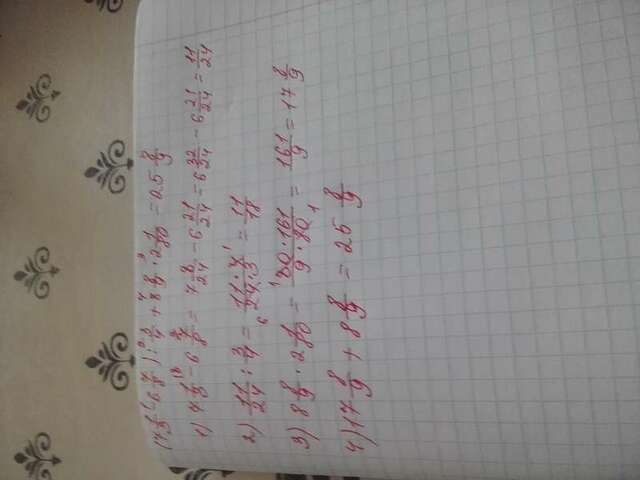 (7 1/3 - 6 7/8) : 3/4 + 8 8/9 · 2 1/80 = 25 8/9
1) 7 1/3 - 6 7/8 = 7 8/24 - 6 21/24 = 6 32/24 - 6 21/24 = 11/24
2) 11/24 : 3/4 = 11·4/24·3 = 11/18
3) 8 8/9 · 2 1/80 = 80·161/9·80 = 161/9 = 17 8/9
4) 17 8/9 + 8 8/9 = 25 8/9